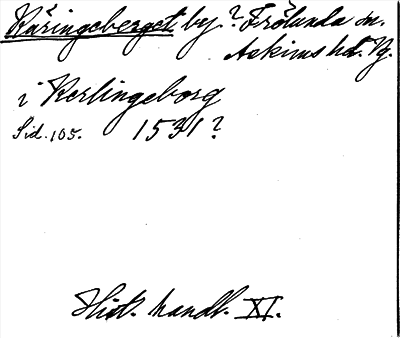 Käringeberget by? Frölunda sn.
Askims hd. Vg.
i Kerlingeborg
Sid. 105. 1531?
Hist. handl. XI.